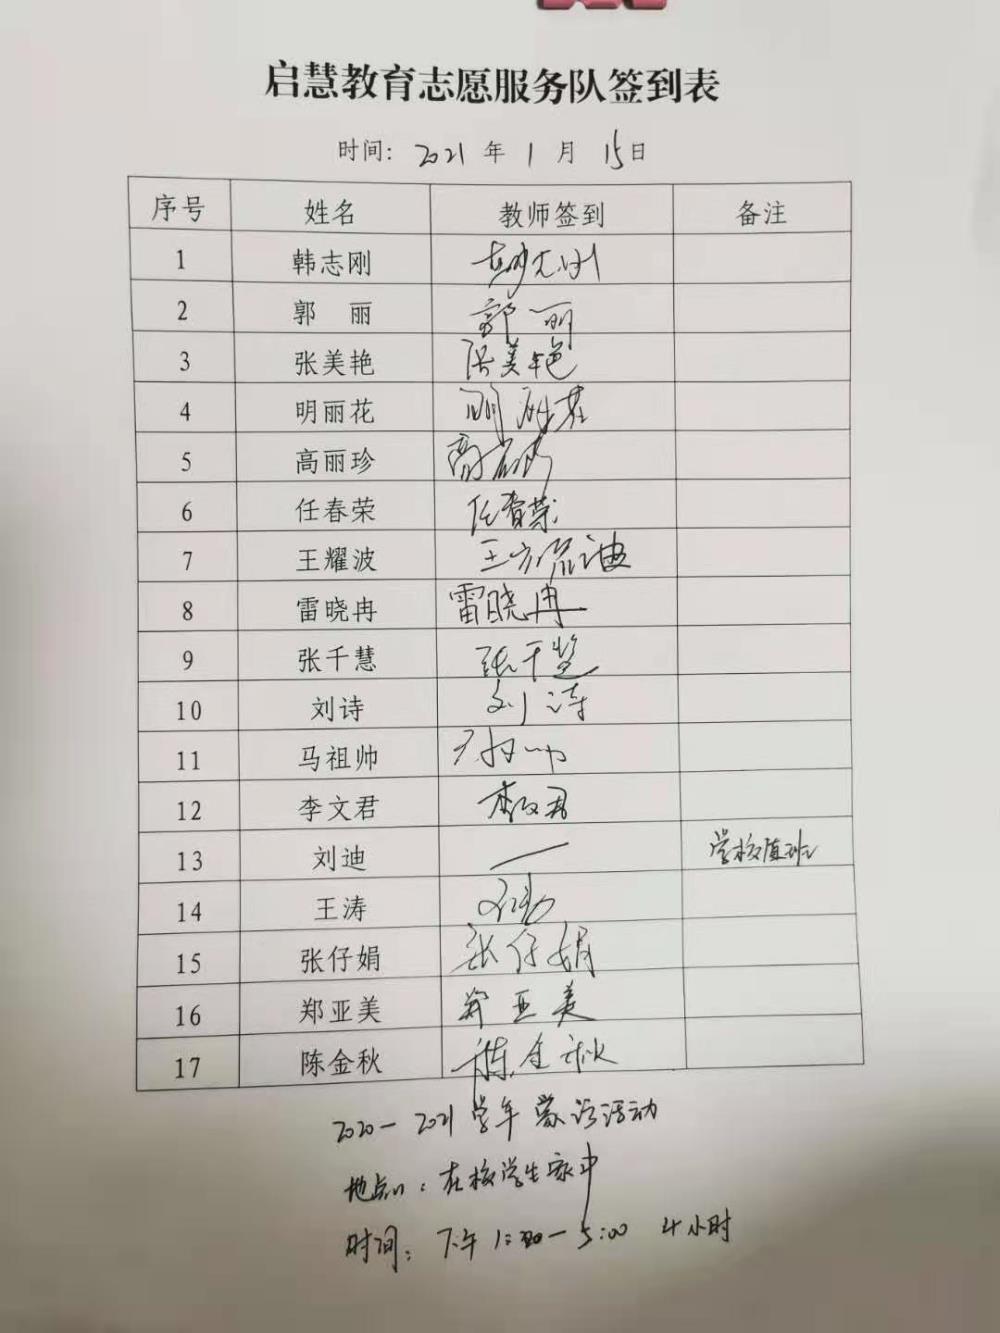 启慧教育志愿服务队签到表
时间: 2021 年 1 月 15 日
序号 姓名 教师签到 备注
1 韩志刚 韩志刚
2 郭 丽 郭丽
3 张美艳 张美艳
4 明丽花 明丽花
5 高丽珍 高丽珍
6 任春荣 任春荣
7 王耀波
8 雷晓冉 雷晓冉
9 张千慧 张千慧
10 刘诗 刘诗
11 马祖帅 马祖帅
12 李文君 李文君
13 刘迪 — 学校值班
14 王涛
15 张仔娟 张仔娟
16 郑亚美 郑亚美
17 陈金秋 陈金秋
2020-2021 学年 家访活动
地点: 在校学生家中
时间: 下午 1:00-5:00 4小时